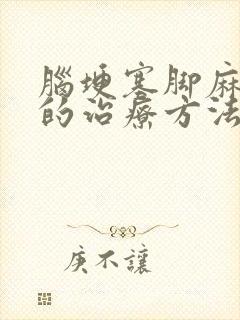 腦埂塞脚麻
的治療方法
庚不讓